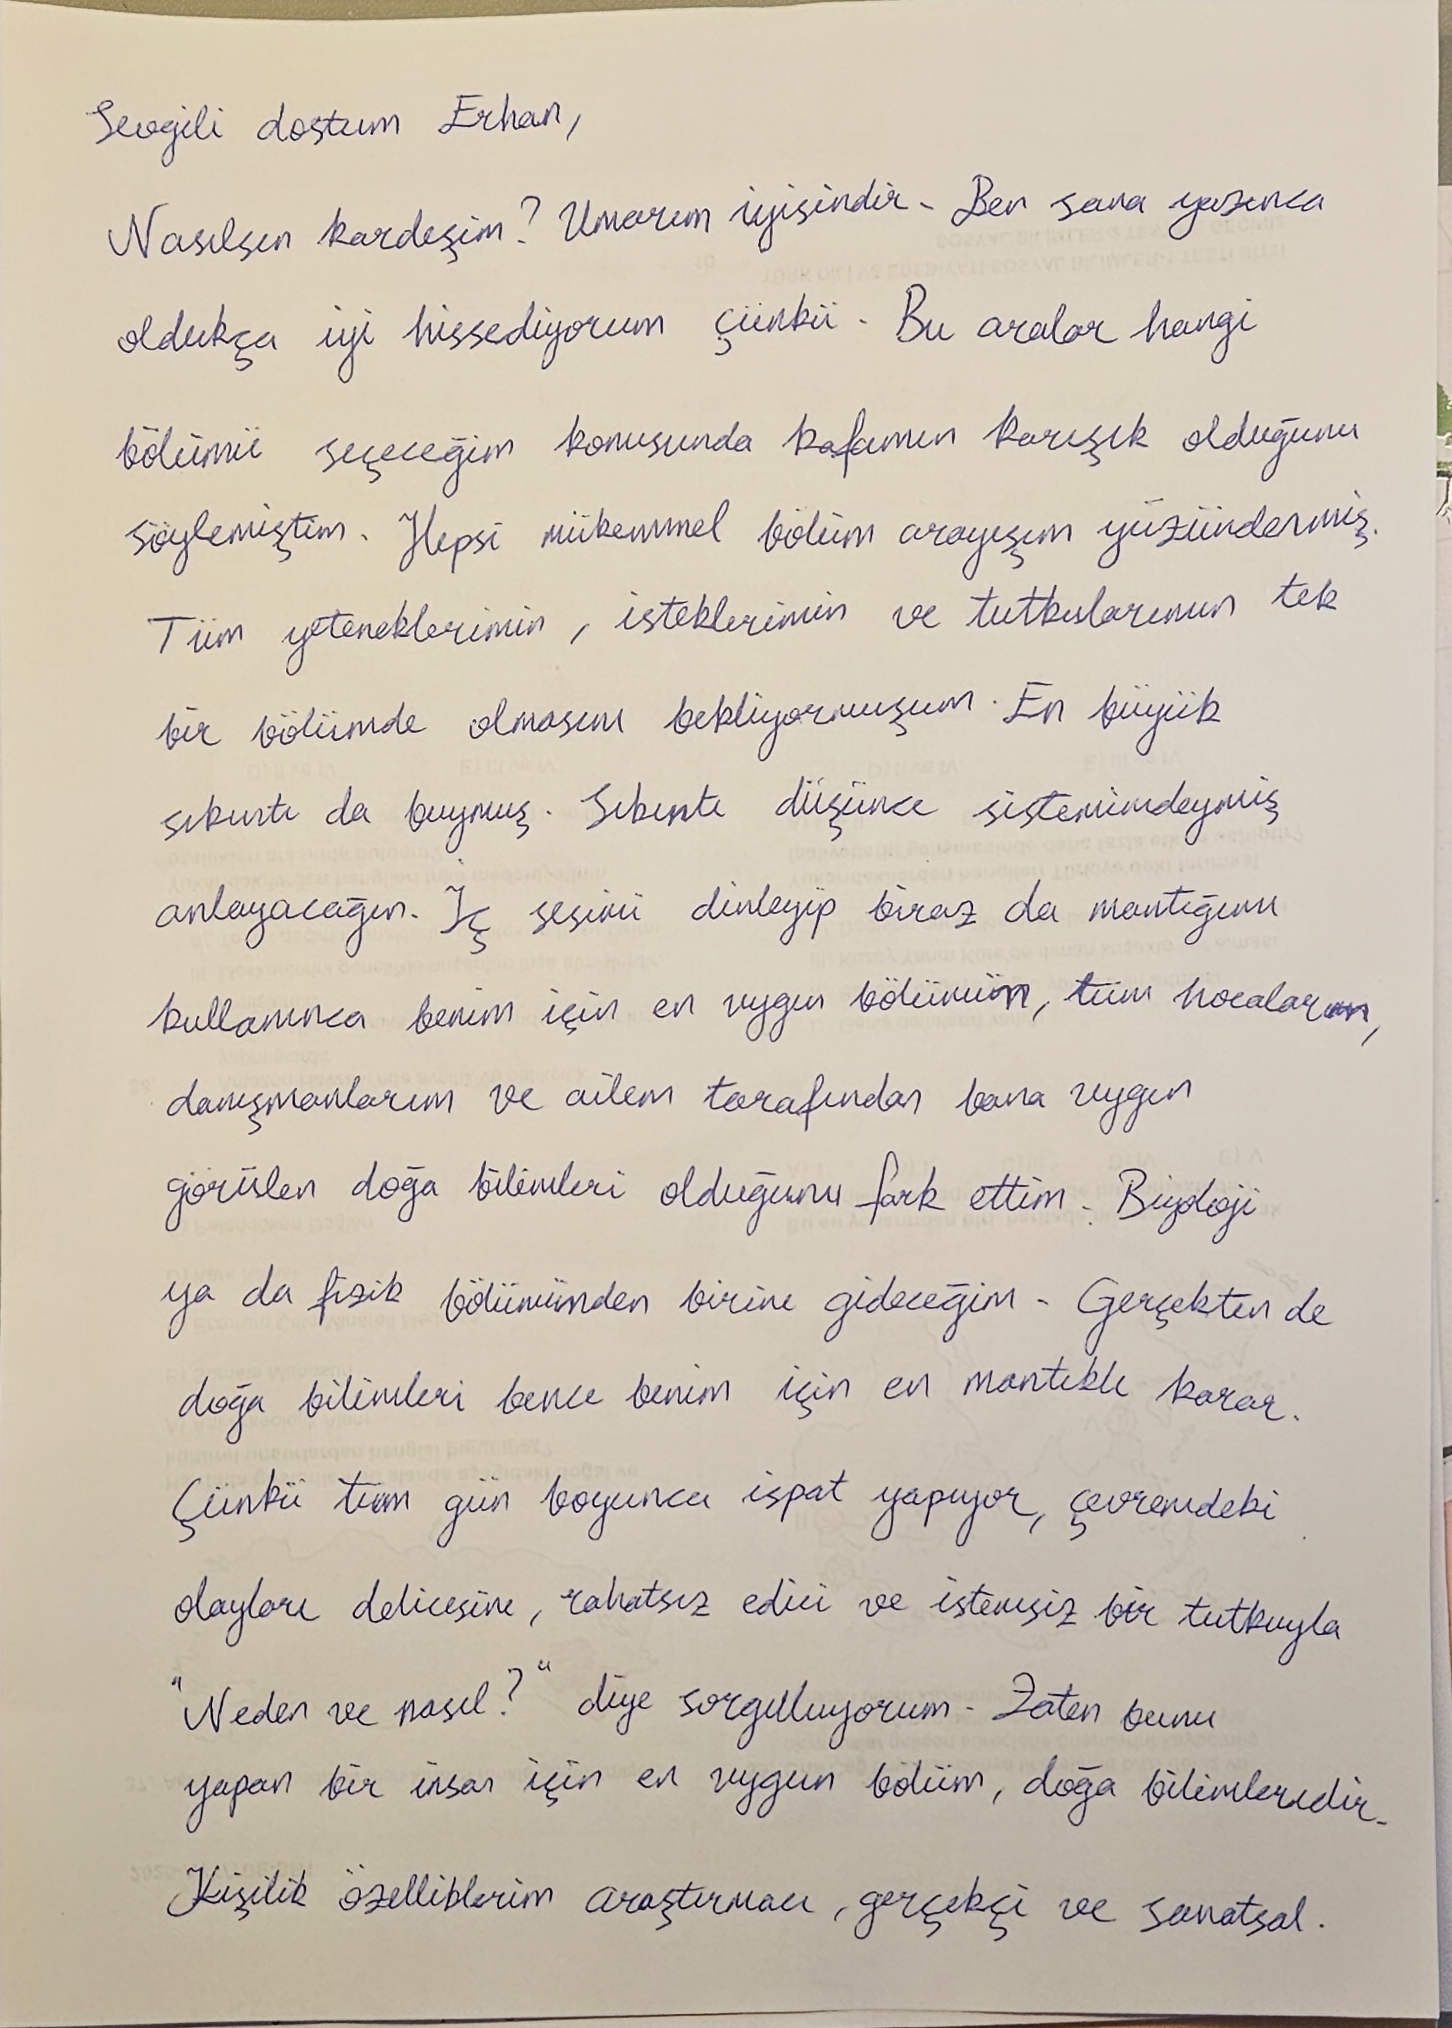 Sevgili dostum Erhan,
Nasılsın kardeşim? Umarım iyisindir. Ben sana yazınca
oldukça iyi hissediyorum çünkü. Bu aralar hangi
bölümü seçeceğim konusunda kafamın karışık olduğunu
söylemiştim. Hepsi mükemmel bölüm arayışım yüzündenmiş.
Tüm yeteneklerimin, isteklerimin ve tutkularımın tek
bir bölümde olmasını bekliyormuşum. En büyük
sıkıntı da buymuş. Sıkıntı düşünce sistemimdeymiş
anlayacağın. İç sesimi dinleyip biraz da mantığımı
kullanınca benim için en uygun bölümün, tüm hocaların,
danışmanlarım ve ailem tarafından bana uygun
görülen doğa bilimleri olduğunu fark ettim. Biyoloji
ya da fizik bölümünden birine gideceğim. Gerçekten de
doğa bilimleri bence benim için en mantıklı karar.
Çünkü tüm gün boyunca ispat yapıyor, çevremdeki
olayları delicesine, rahatsız edici ve istemsiz bir tutkuyla
"Neden ve nasıl?" diye sorguluyorum. Zaten bunu
yapan bir insan için en uygun bölüm, doğa bilimleridir.
Kişilik özelliklerim araştırmacı, gerçekçi ve sanatsal.